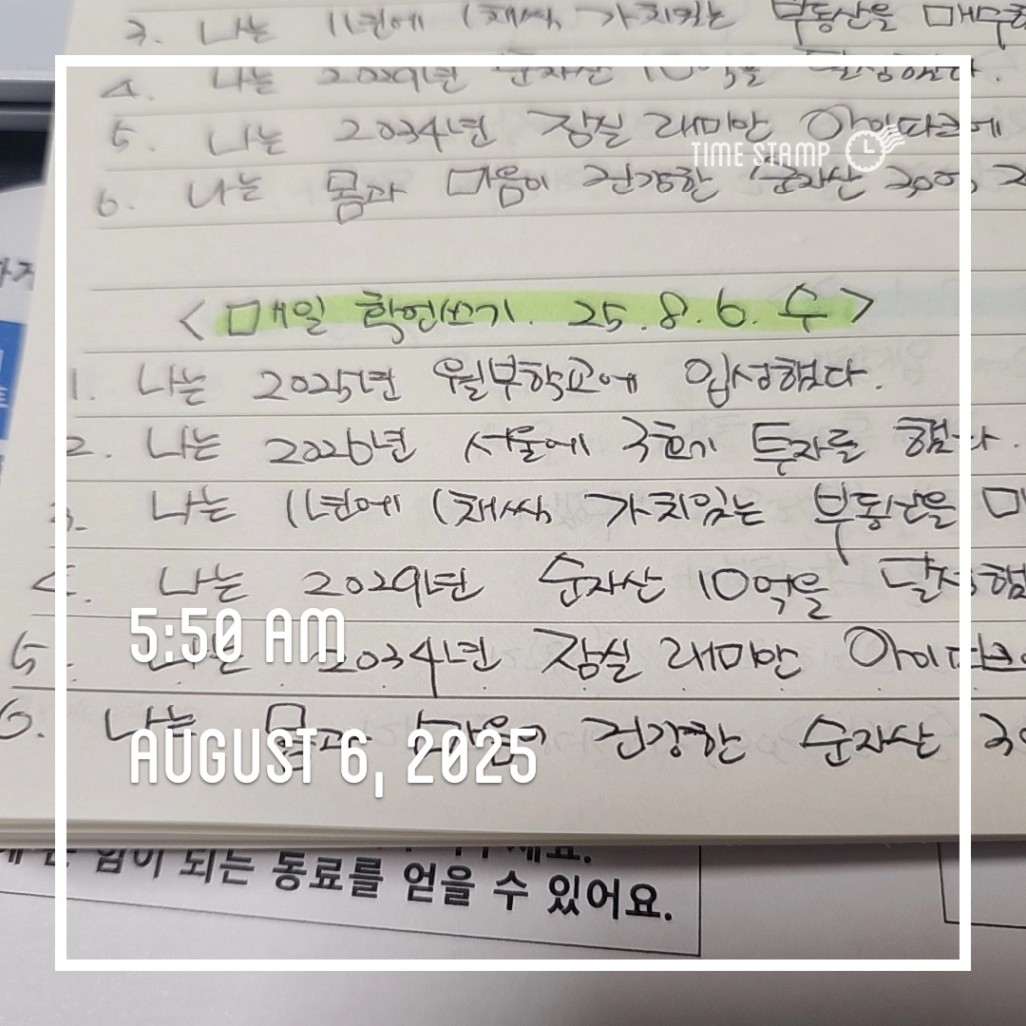 3. 나는 1년에 1채씩, 가치있는 부동산을 매수
4. 나는 2029년 순자산 10억을 달성했다.
5. 나는 2034년 잠실 래미안 아이파크에
TIME STAMP
6. 나는 몸과 마음이 건강한 순자산 300억,
<매일 확언쓰기. 25.8.6. 수>
1. 나는 2025년 월부학교에 입성했다.
2. 나는 2026년 서울에 3호기 투자를 했다.
3. 나는 1년에 1채씩, 가치있는 부동산을
4. 나는 2029년 순자산 10억을 달성했
5. 나는 2034년 잠실 래미안 아이파크
5:50 AM
6. 나는 몸과 마음이 건강한 순자산
AUGUST 6, 2025
힘이 되는 동료를 얻을 수 있어요.